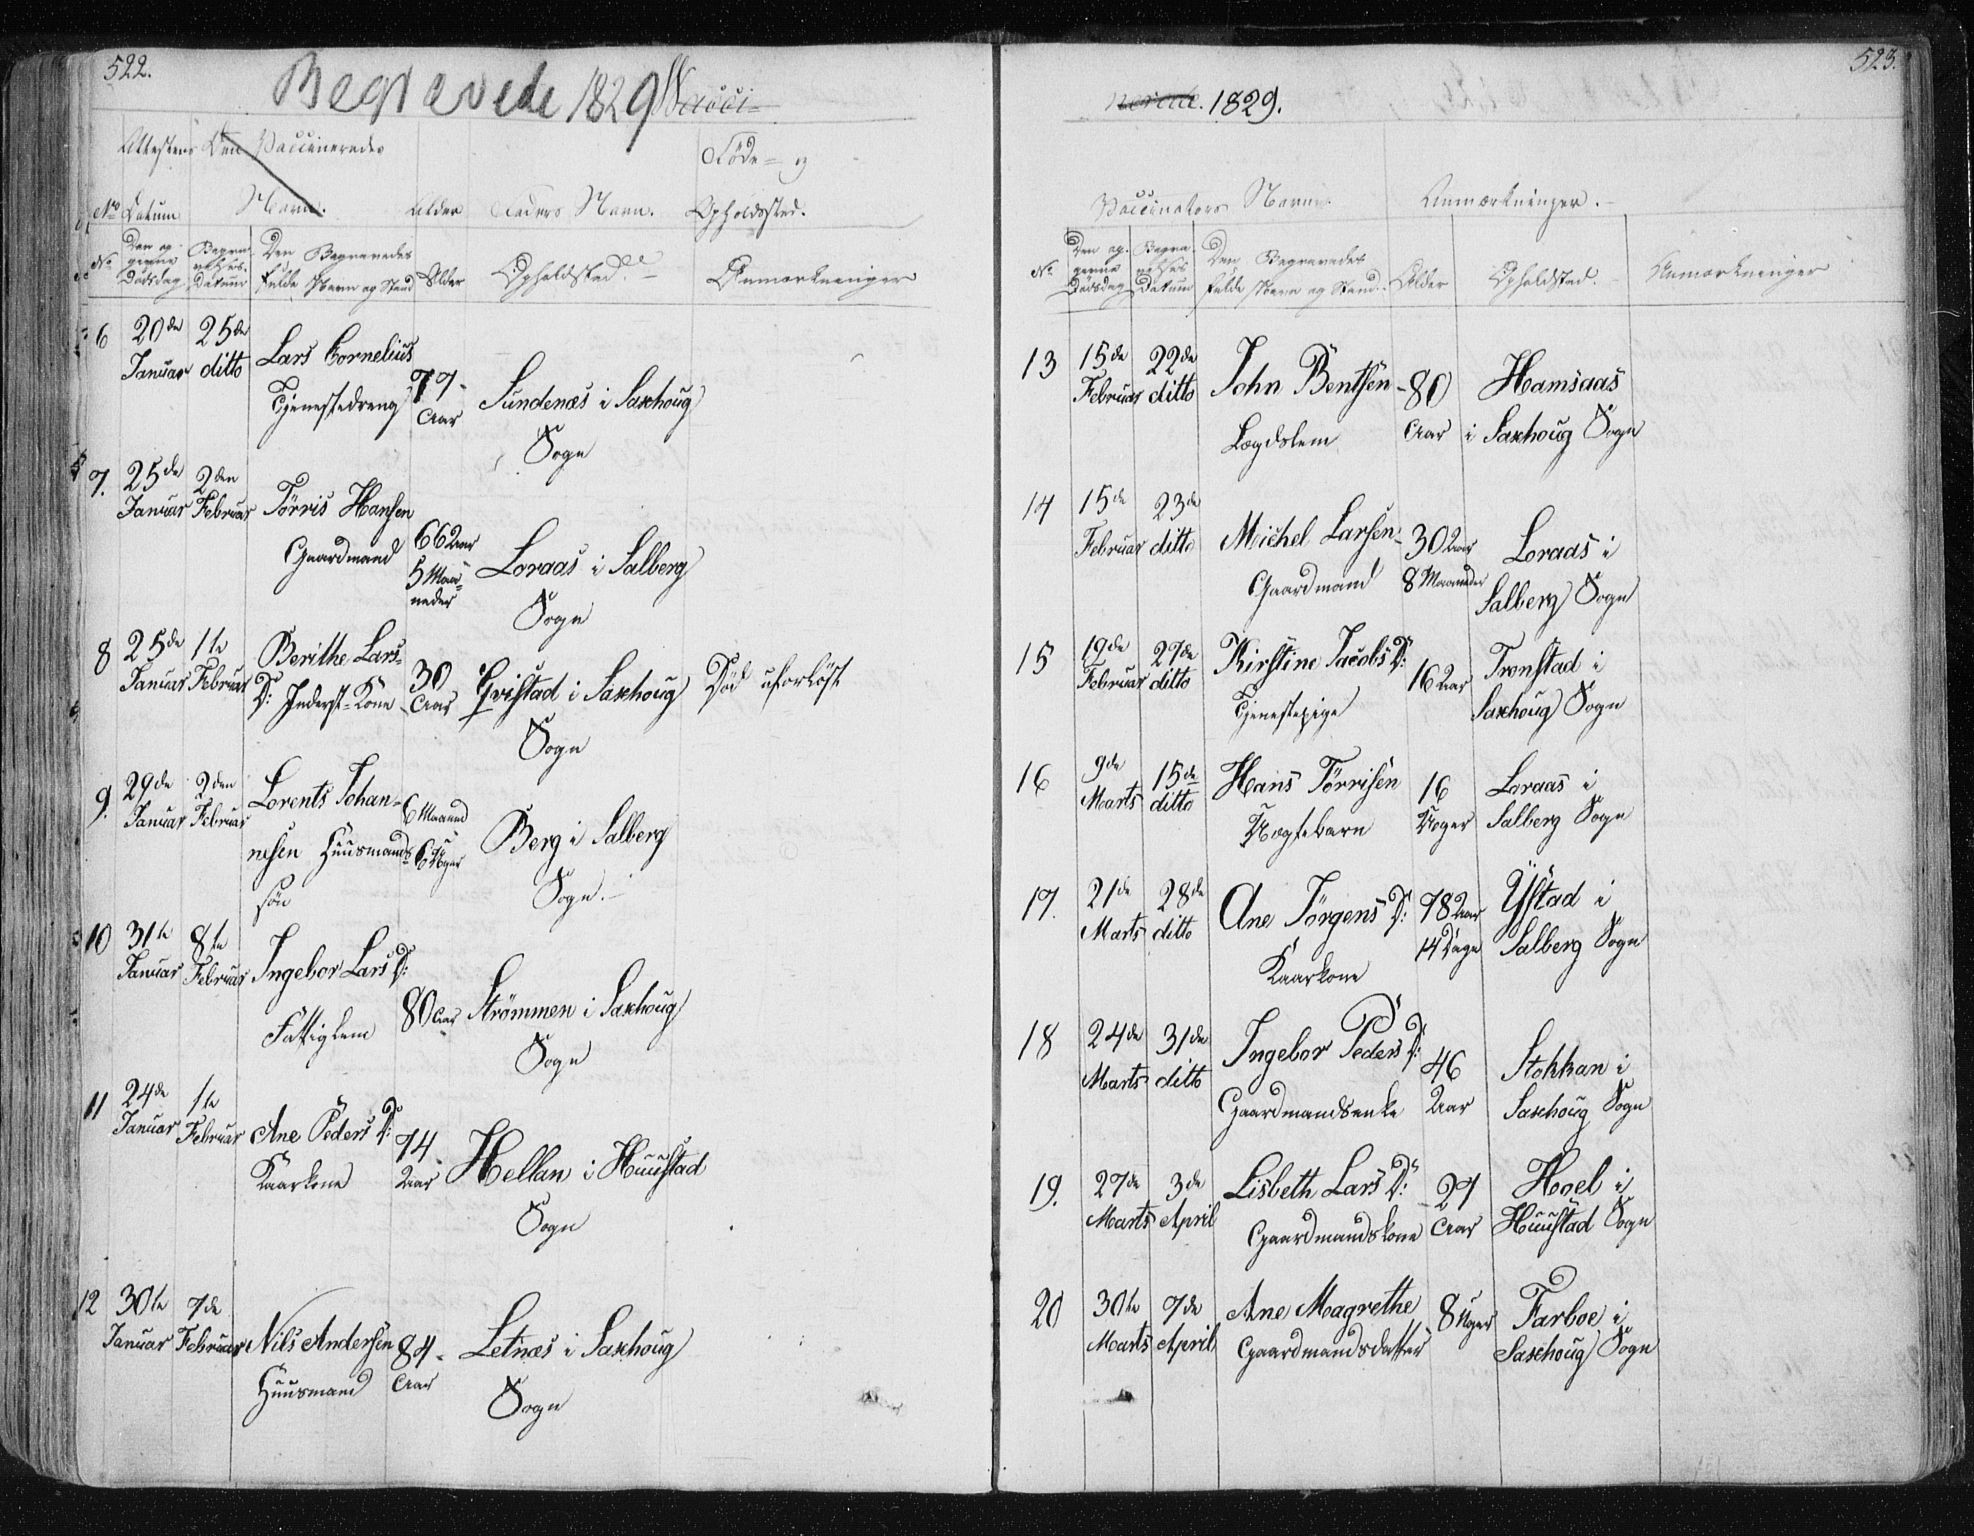 522.
Begravede 1829 Vacci=
Attestens Den Vaccineredes
Føde= og
No Datum Navn. Alder Faders Navn. Opholdssted.
No Den op-
givne
Dødsdag
Begra-
velses-
Datum
Den Begravedes
fulde Navn og Stand
Alder
Opholdsted
Anmærkninger
6 20de 25de Lars Cornelius
Januar ditto
Tjenestedreng 77
Aar Sundenæs i Saxhoug
Sogn
7. 25de 2den Törris Hansen
Januar Februar
Gaardmand 66 Aar
5 Maa-
neder Loraas i Salberg
Sogn
8 25de 1te Berithe Lars-
Januar Februar D: Inderst-Kone 30
Aar Gvistad i Saxhoug Død uforløst
Sogn
9. 29de 2den Lorents Johan-
Januar Februar
nesen Huusmands-
søn
6 Maaned
6 Uger Berg i Salberg
Sogn.
10 31te 8te Ingebor Lars D:
Januar Februar
Fattiglem 80 Aar Strömmen i Saxhoug
Sogn
11 24de 1te Ane Peders D:
Januar Februar
Kaarkone 74
Aar Hellan i Huustad
Sogn
12 30te 7de Nils Andersen
Januar Februar
Huusmand 84
Aar Letnæs i Saxhoug
Sogn
523.
nerede. 1829.
Vaccinators Navn. Anmærkninger.
No Den op-
givne
Dødsdag
Begra-
velses
Datum
Den Begravedes
fulde Navn og Stand.
Alder
Opholdsted.
Anmærkninger
13 15de 22de John Bentsen 80 Hamsaas
Februar ditto
Lægdslem Aar i Saxhoug Sogn
14 15de 23de Michel Larsen 30 Aar Loraas i
Februar ditto
Gaardmand 8 Maaneder Salberg Sogn
15 19de 27de Kirstine Jacobs D: 16 Aar Tronstad i
Februar ditto
Tjenestepige Saxhoug Sogn
16 9de 15de Hans Törrisen 16 Loraas i
Marts ditto
Uægtebarn Uger Salberg Sogn
17. 21de 28de Ane Jörgens D: 78 Aar Ystad i
Marts ditto
Kaarkone 14 Dage Salberg Sogn
18 24de 31de Ingebor Peders D: 46 Stokkan i
Marts ditto
Gaardmandsenke Aar Saxhoug Sogn
19. 27de 3de Lisbeth Lars D: 27 Hogel i
Marts April
Gaardmandskone Aar Huustad Sogn
20 30te 7de Ane Magrethe 8 Uger Farboe i
Marts April
Gaardmandsdatter Saxhoug Sogn